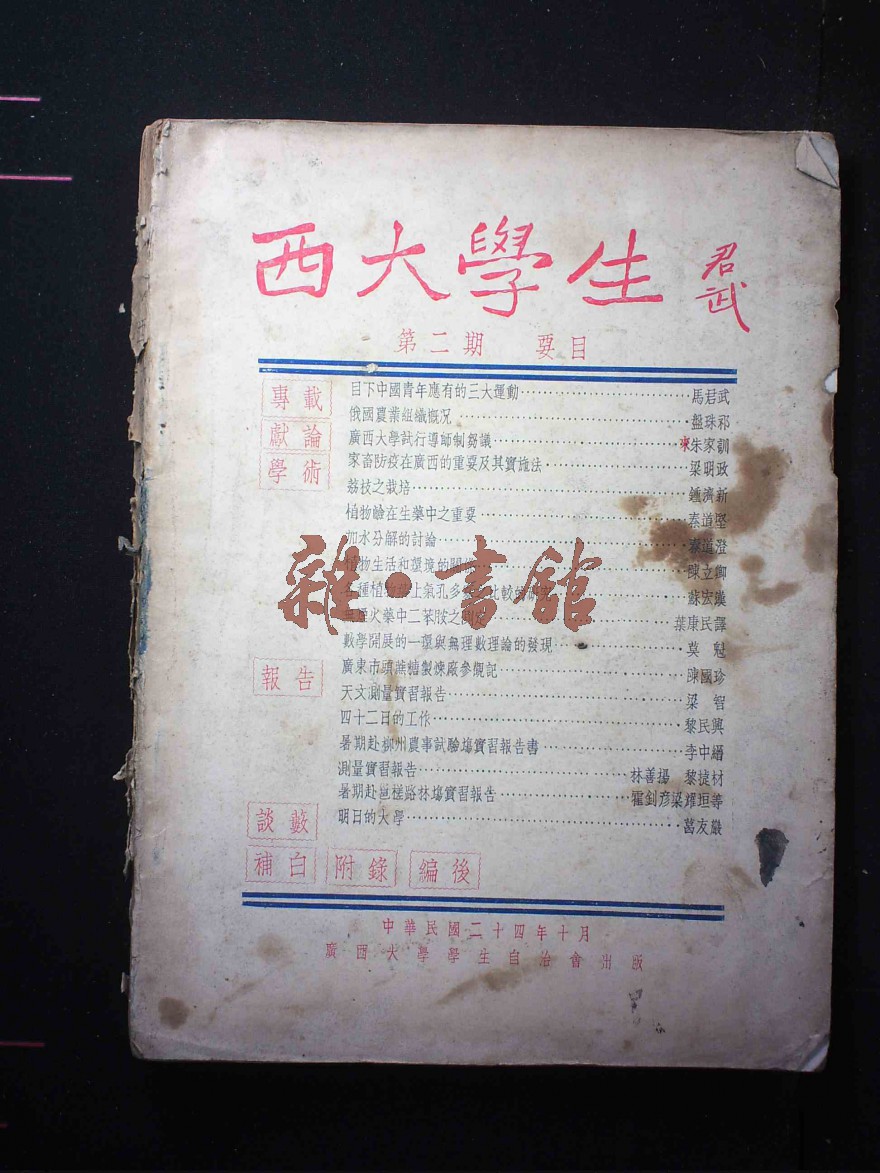 西大學生 君武
第二期 要目
專載 目下中國青年應有的三大運動 馬君武
俄國農業組織概況 盤珠祁
獻論 廣西大學試行導師制芻議 朱家訓
學術 家畜防疫在廣西的重要及其實施法 梁明政
荔枝之栽培 鍾濟新
植物鹼在生藥中之重要 秦道堅
加水分解的討論 秦道澄
植物生活和環境的關係 陳立卿
各種植物葉上氣孔多 比較的研究 蘇宏漢
無煙火藥中二苯胺之 葉康民譯
數學開展的一環與無理數理論的發現 莫魁
報告 廣東市頭蔗糖製煉廠參觀記 陳國珍
天文測量實習報告 梁智
四十二日的工作 黎民興
暑期赴柳州農事試驗場實習報告書 李中縉
測量實習報告 林善揚 黎捷材
暑期赴邕槎路林場實習報告 霍釗彦梁燿垣等
談藪 明日的大學 葛友嚴
補白 附錄 編後
中華民國二十四年十月
廣西大學學生自治會出版
雜·書館